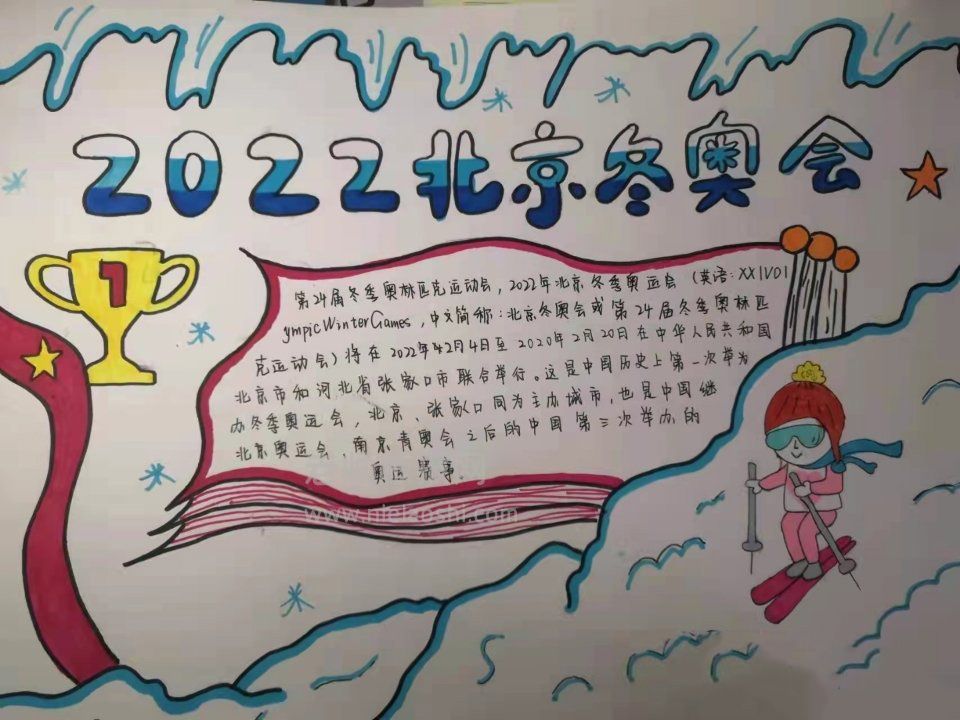 2022北京冬奥会
1
第24届冬季奥林匹克运动会，2022年北京冬季奥运会（英语：XXIVOl
ympicWinterGames，中文简称：北京冬奥会或第24届冬季奥林匹
克运动会）将在2022年42月4日至2020年2月20日在中华人民共和国
北京市和河北省张家口市联合举行。这是中国历史上第一次举为
办冬季奥运会，北京、张家口同为主办城市，也是中国继
北京奥运会、南京青奥会之后的中国第三次举办的
奥运赛事。